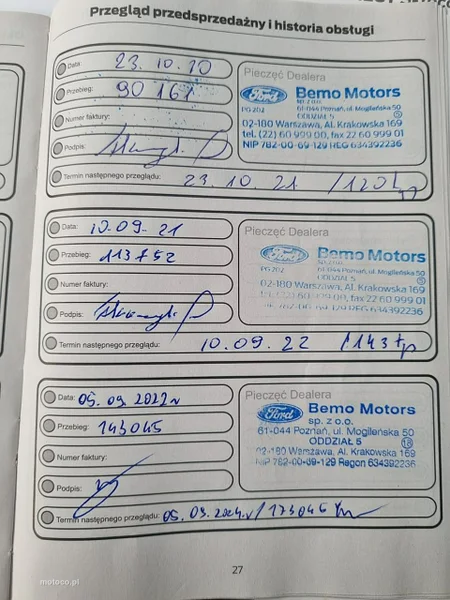 Przegląd przedsprzedażny i historia obsługi
Data: 23.10.20
Przebieg: 90 161
Numer faktury:
Podpis:
Termin następnego przeglądu: 23.10.21 /120
Pieczęć Dealera
Ford Bemo Motors
sp. z o.o.
PG 202 61-044 Poznań, ul. Mogileńska 50
ODDZIAŁ 5
02-180 Warszawa, Al. Krakowska 169
tel. (22) 60 999 00, fax 22 60 999 01
NIP 782-00-69-129 REG 634392236
Data: 10.09.21
Przebieg: 113752
Numer faktury:
Podpis:
Termin następnego przeglądu: 10.09.22 /143
Pieczęć Dealera
Ford Bemo Motors
sp. z o.o.
PG 202 61-044 Poznań, ul. Mogileńska 50
ODDZIAŁ 5
02-180 Warszawa, Al. Krakowska 169
fax 22 60 999 01
REG 634392236
Data: 05.09.2022r
Przebieg: 143045
Numer faktury:
Podpis:
Termin następnego przeglądu: 05.09.2024.r/173045 km
Pieczęć Dealera
Ford Bemo Motors
sp. z o.o.
61-044 Poznań, ul. Mogileńska 50
ODDZIAŁ 5 18
02-180 Warszawa, Al. Krakowska 169
NIP 782-00-69-129 Regon 634392236
27
motoco.pl